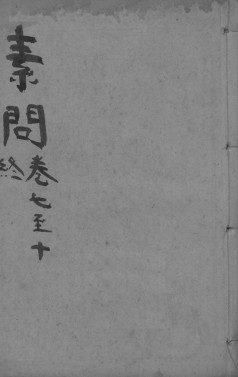 素問
卷七至十
終